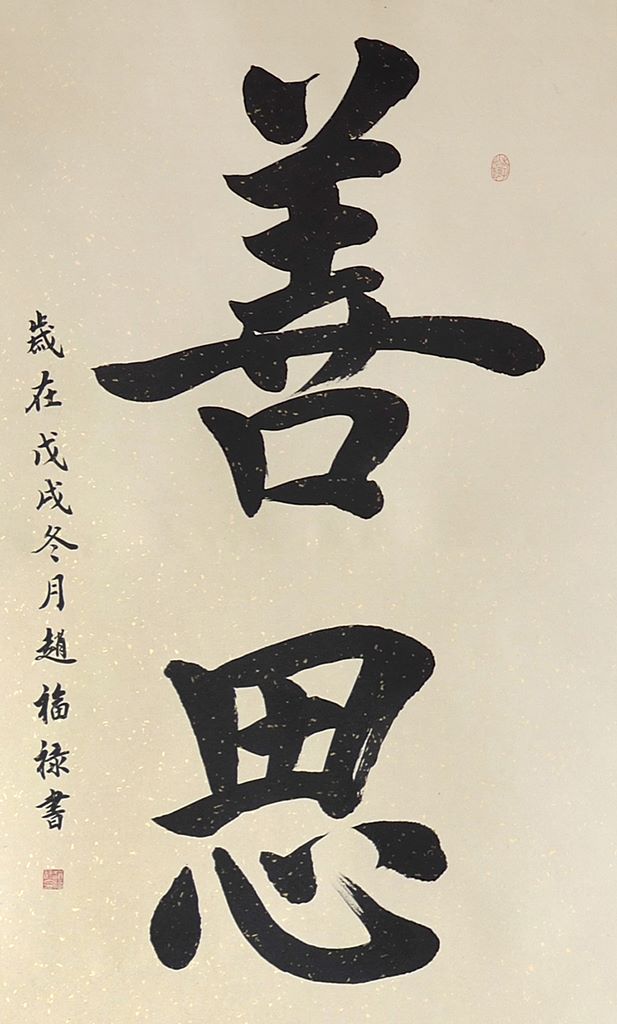 善思
歲在戊戌冬月趙福祿書